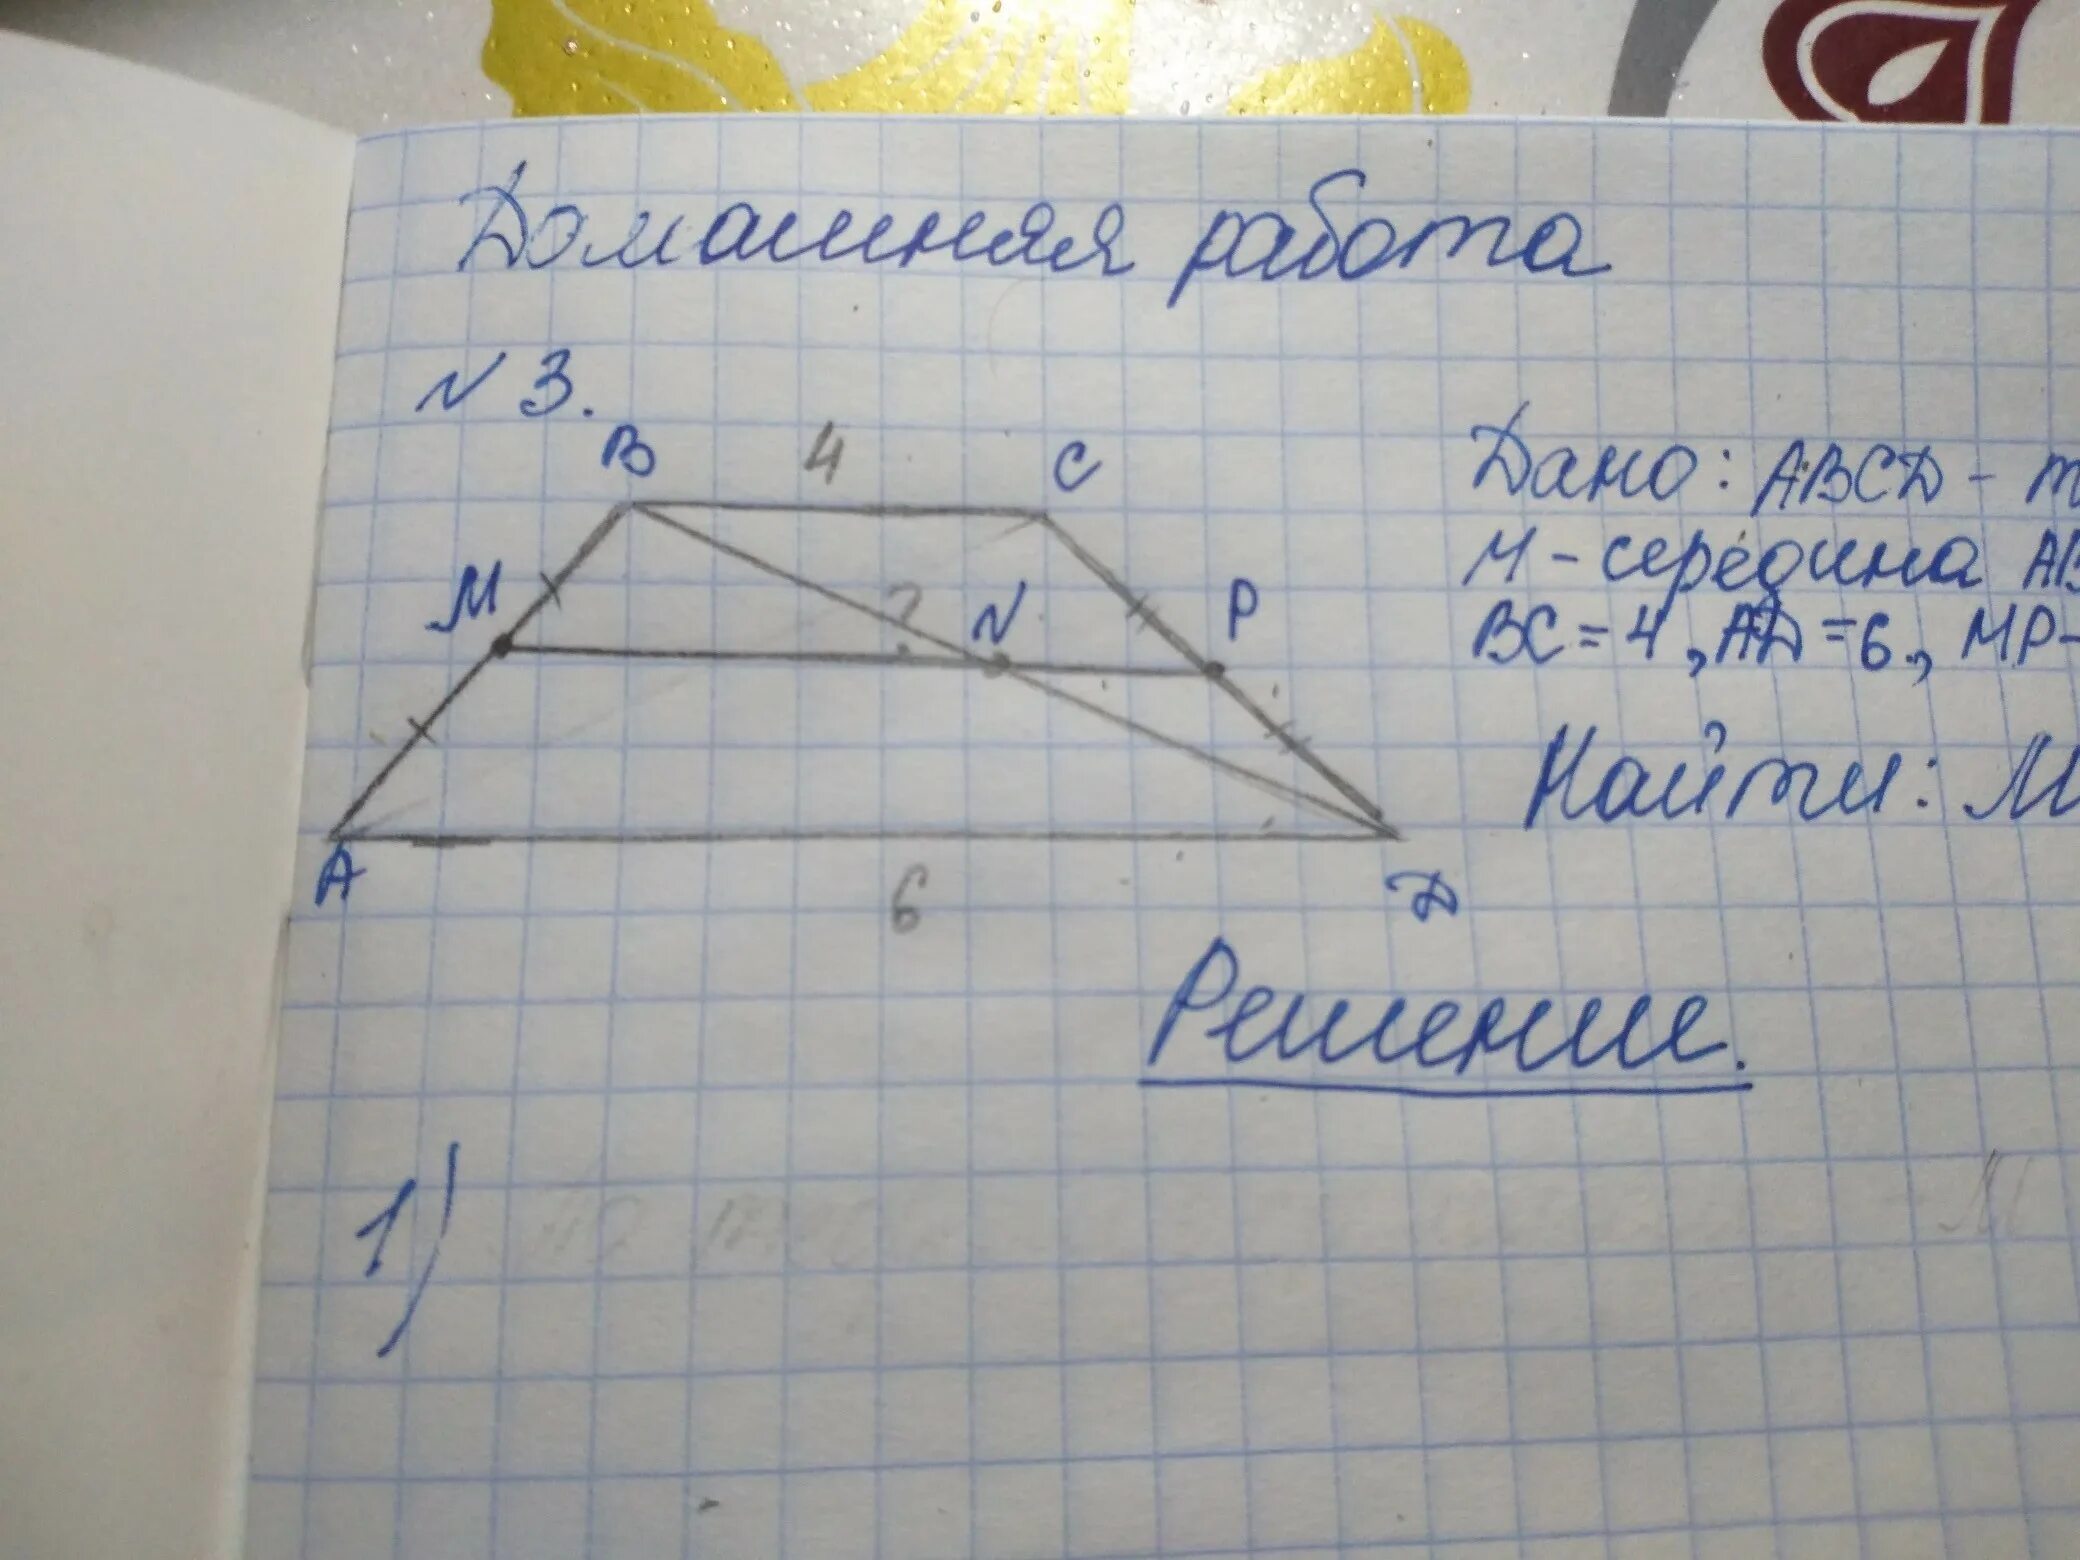 Домашняя работа
N 3.
B 4 C
M ? N P
A 6 D
Дано: ABCD - т
M - середина AB
BC = 4, AD = 6, MP -
Найти: M
Решение.
1)